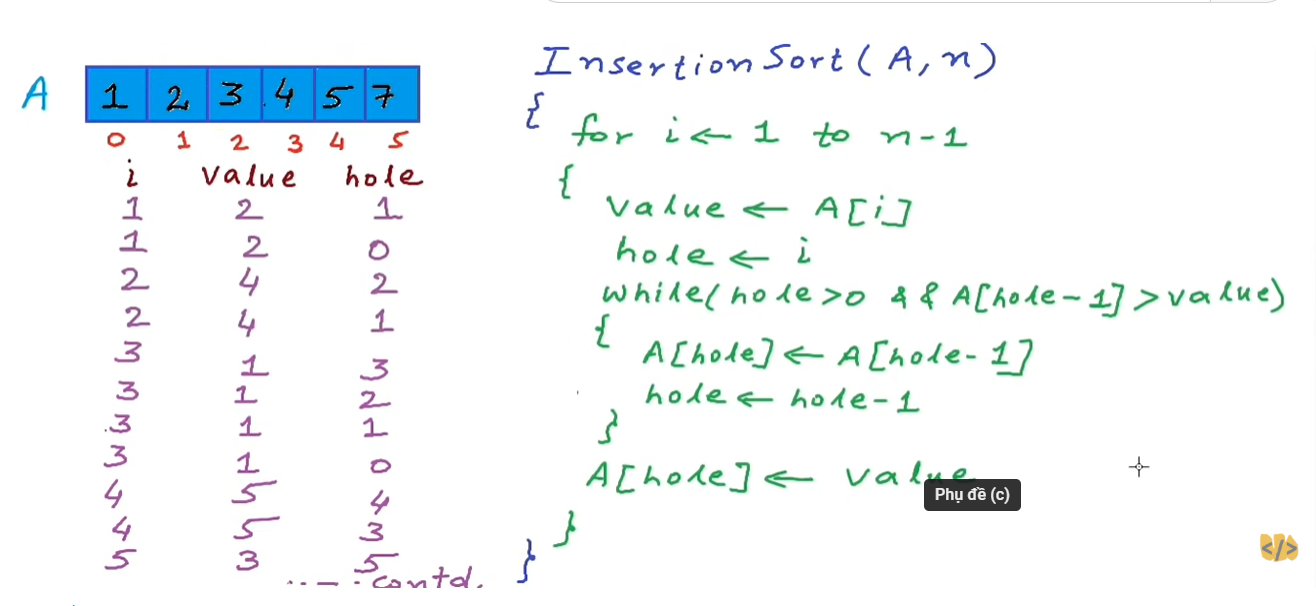 A 1 2 3 4 5 7
0 1 2 3 4 5
i value hole
1 2 1
1 2 0
2 4 2
2 4 1
3 1 3
3 1 2
3 1 1
3 1 0
4 5 4
4 5 3
5 3 5
.. — . contd.
InsertionSort(A, n)
{
for i ← 1 to n-1
{
value ← A[i]
hole ← i
while(hole>0 && A[hole-1]>value)
{
A[hole] ← A[hole-1]
hole ← hole-1
}
A[hole] ← value
Phụ đề (c)
}
}
</>